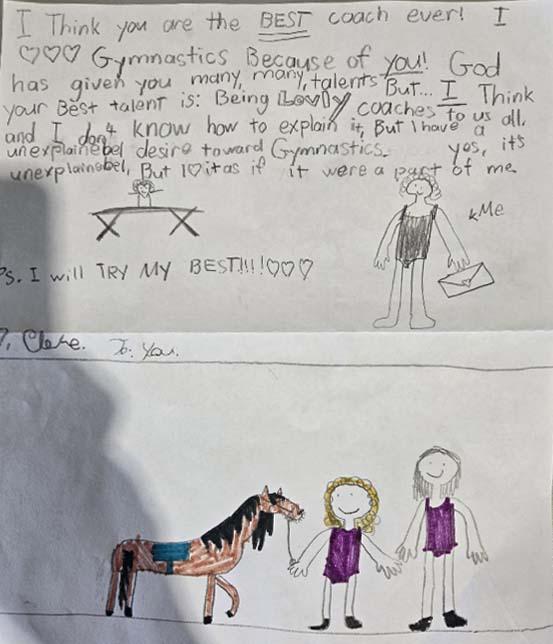 I Think you are the BEST coach ever! I
♡♡♡ Gymnastics Because of you! God
has given you many, many, talents But... I Think
your Best talent is: Being Lovely coaches to us all,
and I don't know how to explain it, But I have a
unexplainebel desire toward Gymnastics. yes, it's
unexplainebel, But I ♡ it as if it were a part of me.
Me
Ps. I will TRY MY BEST!!!! ♡♡♡
To: You.